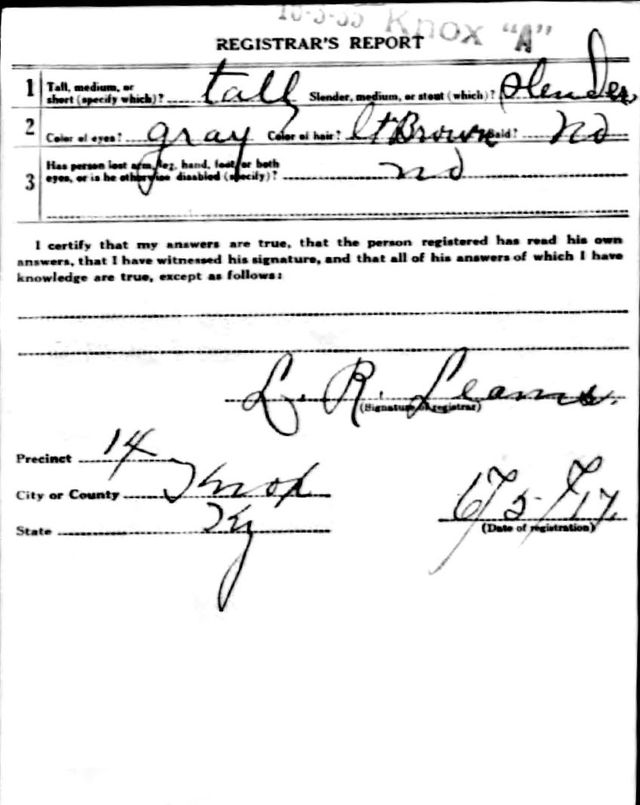 16-3-35 Knox "A"
REGISTRAR'S REPORT
1 Tall, medium, or short (specify which)? tall Slender, medium, or stout (which)? slender
2 Color of eyes? gray Color of hair? Lt Brown Bald? No
3 Has person lost arm, leg, hand, foot, or both
eyes, or is he otherwise disabled (specify)? no
I certify that my answers are true, that the person registered has read his own
answers, that I have witnessed his signature, and that all of his answers of which I have
knowledge are true, except as follows:
L. R.
(Signature of registrar)
Precinct 14
City or County Knox
State Ky
6/5/17.
(Date of registration)